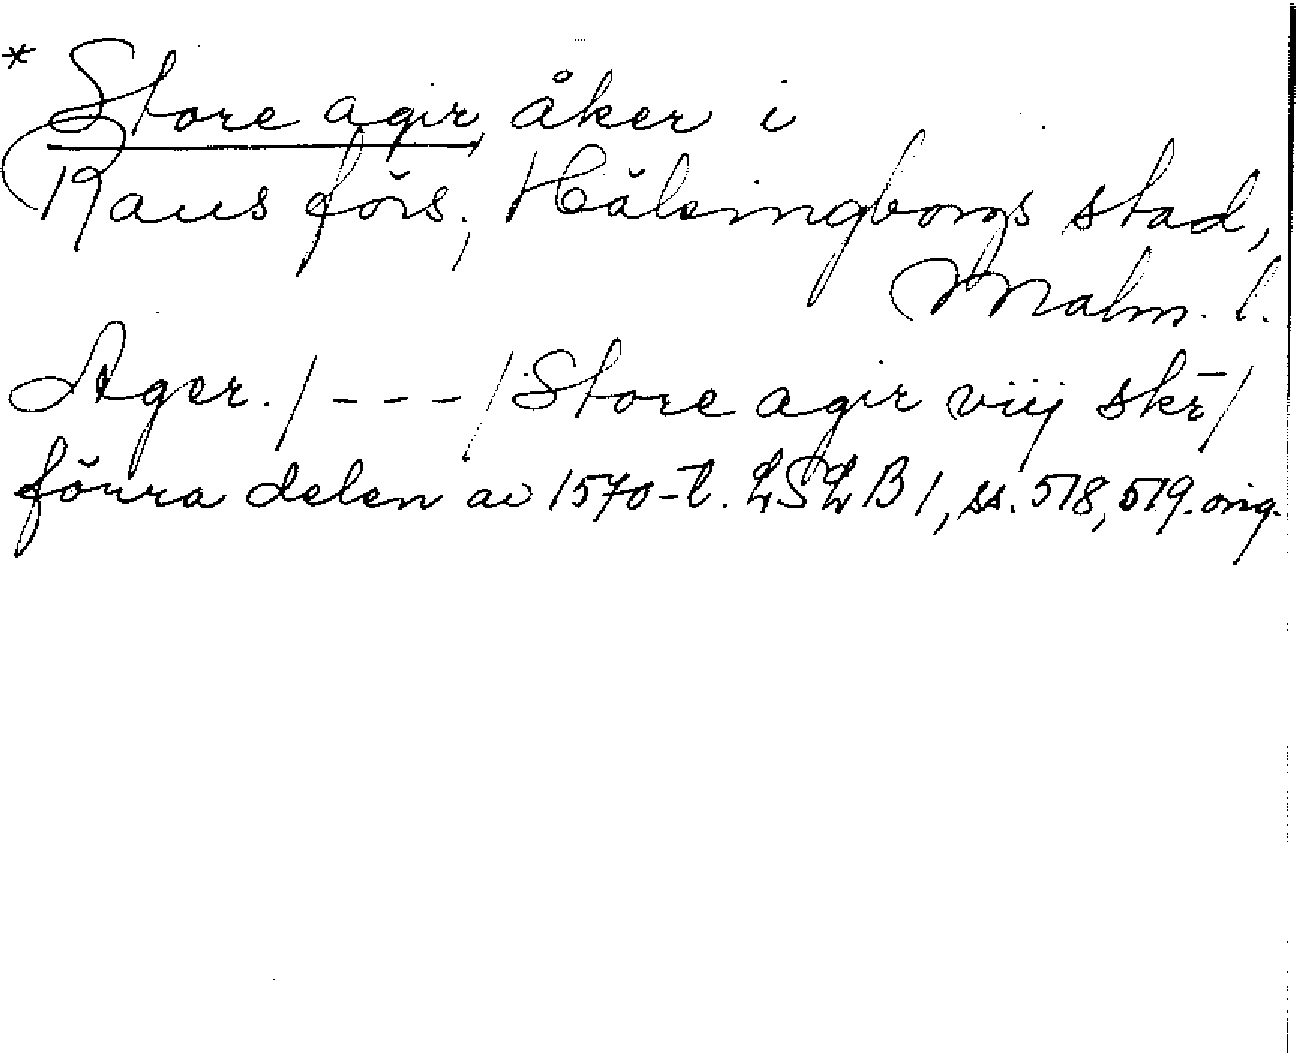 * Store agir, åker i
Raus förs., Hälsingborgs stad,
Malm. l.
Ager. / - - - / Store agir viij skr̄ /
förra delen av 1570-t. LSLB 1, ss. 518, 519. orig.